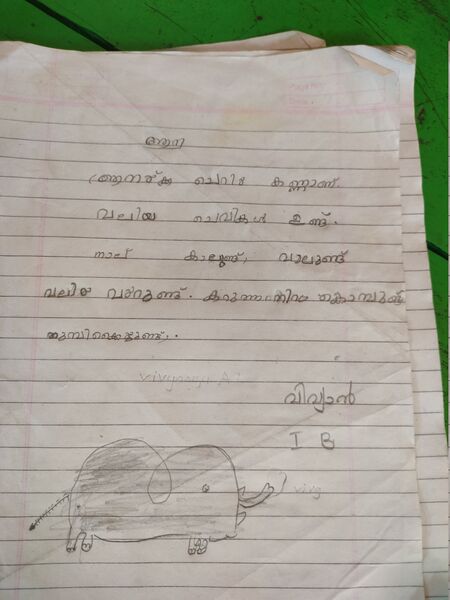 ആന
ആനയ്ക്ക ചെറിയ കണ്ണാണ്.
വലിയ ചെവികൾ ഉണ്ട്.
നാല് കാലുണ്ട്, വാലുണ്ട്
വലിയ വയറുണ്ട്. കറുത്തനിറമ കൊമ്പുണ്ട്
തുമ്പിക്കൈയുണ്ട്..
വിവ്യാൻ
I B
vivg